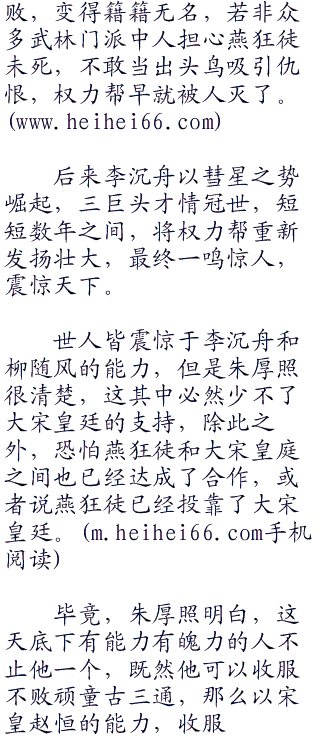 败，变得籍籍无名，若非众
多武林门派中人担心燕狂徒
未死，不敢当出头鸟吸引仇
恨，权力帮早就被人灭了。
(www.heihei66.com)
后来李沉舟以彗星之势
崛起，三巨头才情冠世，短
短数年之间，将权力帮重新
发扬壮大，最终一鸣惊人，
震惊天下。
世人皆震惊于李沉舟和
柳随风的能力，但是朱厚照
很清楚，这其中必然少不了
大宋皇廷的支持，除此之
外，恐怕燕狂徒和大宋皇庭
之间也已经达成了合作，或
者说燕狂徒已经投靠了大宋
皇廷。(m.heihei66.com手机
阅读)
毕竟，朱厚照明白，这
天底下有能力有魄力的人不
止他一个，既然他可以收服
不败顽童古三通，那么以宋
皇赵恒的能力，收服